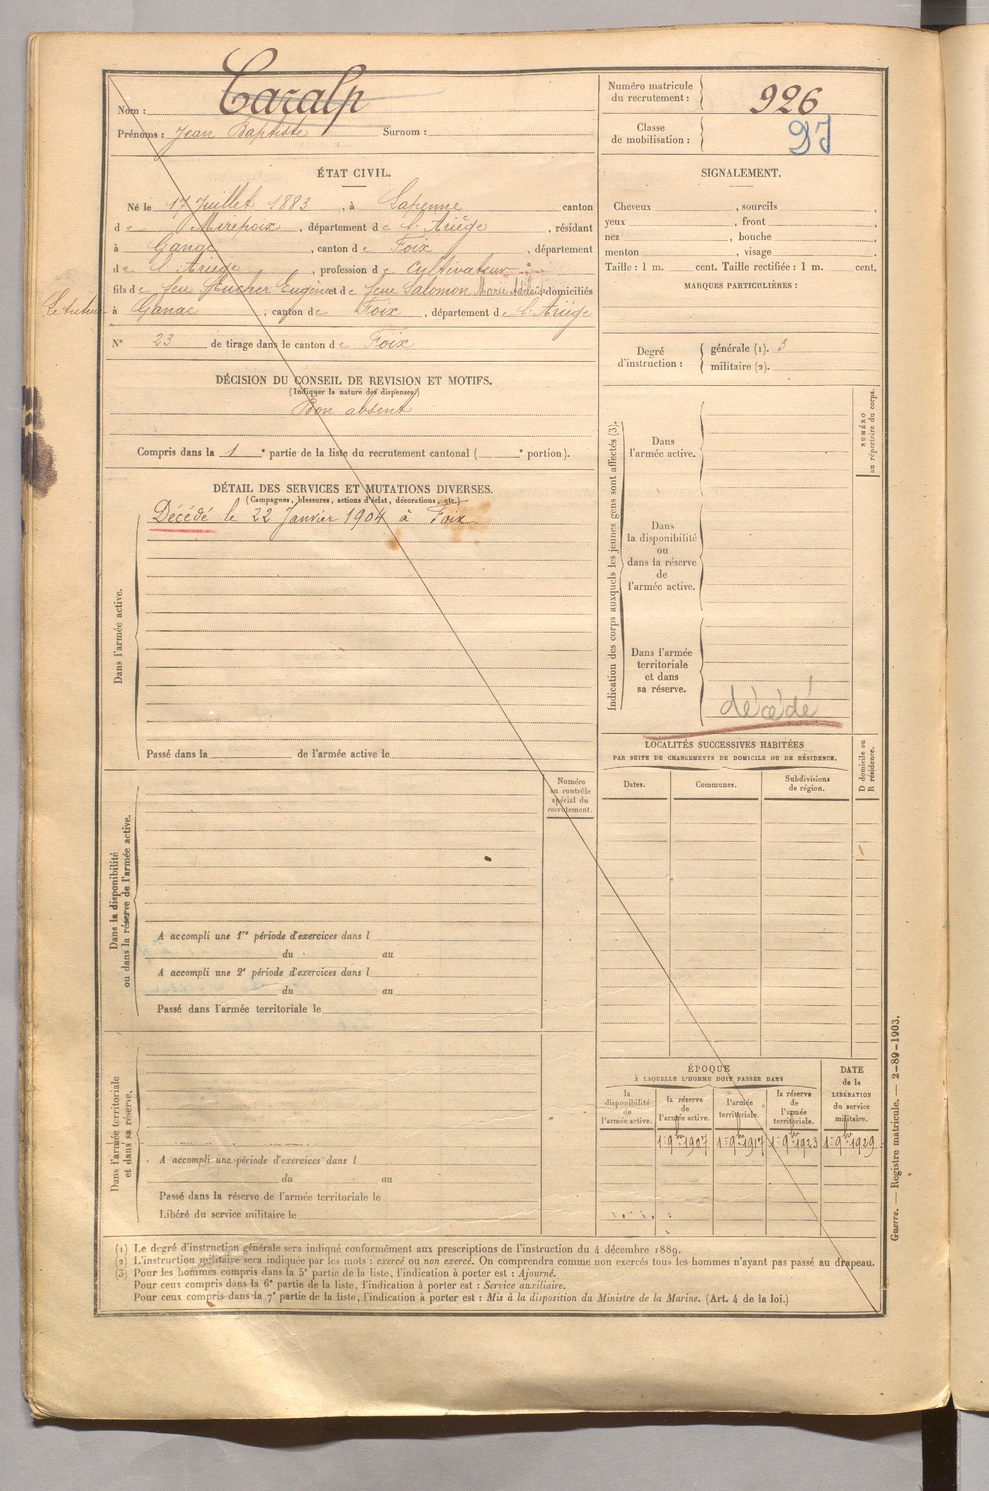 Nom : Caralp
Prénoms : Jean Baptiste Surnom :
Numéro matricule du recrutement : 926
Classe de mobilisation :
ÉTAT CIVIL.
Né le 17 Juillet 1883, à Lapenne canton
de Mirepoix, département de l'Ariège, résidant
à Ganac, canton de Foix, département
de l'Ariège, profession de Cultivateur
fils de feu Eugène et de feu Salomon Marie domiciliés
à Ganac, canton de Foix, département de l'Ariège
N° 23 de tirage dans le canton de Foix
DÉCISION DU CONSEIL DE REVISION ET MOTIFS.
(Indiquer la nature des dispenses)
Bon absent
Compris dans la 1e partie de la liste du recrutement cantonal ( e portion).
DÉTAIL DES SERVICES ET MUTATIONS DIVERSES.
(Campagnes, blessures, actions d'éclat, décorations, etc.)
Décédé le 22 Janvier 1904 à Foix.
Dans l'armée active.
Passé dans la de l'armée active le
Numéro au contrôle spécial du recrutement.
Dans la disponibilité
ou dans la réserve de l'armée active.
A accompli une 1re période d'exercices dans l
du au
A accompli une 2e période d'exercices dans l
du au
Passé dans l'armée territoriale le
Dans l'armée territoriale
et dans sa réserve.
A accompli une période d'exercices dans l
du au
Passé dans la réserve de l'armée territoriale le
Libéré du service militaire le
SIGNALEMENT.
Cheveux , sourcils ,
yeux , front ,
nez , bouche ,
menton , visage .
Taille : 1 m. cent. Taille rectifiée : 1 m. cent.
MARQUES PARTICULIÈRES :
Degré d'instruction : générale (1). 3
militaire (2).
Indication des corps auxquels les jeunes gens sont affectés (3).
NUMÉRO
au répertoire du corps.
Dans
l'armée active.
Dans
la disponibilité
ou
dans la réserve
de
l'armée active.
Dans l'armée
territoriale
et dans
sa réserve.
décédé
LOCALITÉS SUCCESSIVES HABITÉES
PAR SUITE DE CHANGEMENTS DE DOMICILE OU DE RÉSIDENCE.
D domicile ou
R résidence.
Dates. Communes. Subdivisions de région.
ÉPOQUE
À LAQUELLE L'HOMME DOIT PASSER DANS
DATE de la LIBÉRATION du service militaire.
la disponibilité de l'armée active. la réserve de l'armée active. l'armée territoriale. la réserve de l'armée territoriale.
1er 9bre 1907 1er 9bre 1917 1er 9bre 1923 1er 9bre 1929
(1) Le degré d'instruction générale sera indiqué conformément aux prescriptions de l'instruction du 4 décembre 1889.
(2) L'instruction militaire sera indiquée par les mots : exercé ou non exercé. On comprendra comme non exercés tous les hommes n'ayant pas passé au drapeau.
(3) Pour les hommes compris dans la 5e partie de la liste, l'indication à porter est : Ajourné.
Pour ceux compris dans la 6e partie de la liste, l'indication à porter est : Service auxiliaire.
Pour ceux compris dans la 7e partie de la liste, l'indication à porter est : Mis à la disposition du Ministre de la Marine. (Art. 4 de la loi.)
Guerre. — Registre matricule. — 2-89-1903.